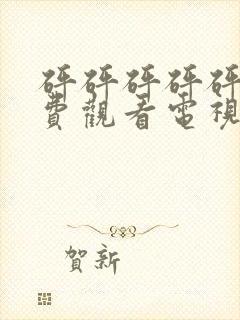 砰砰砰砰砰
費觀看電視
賀新